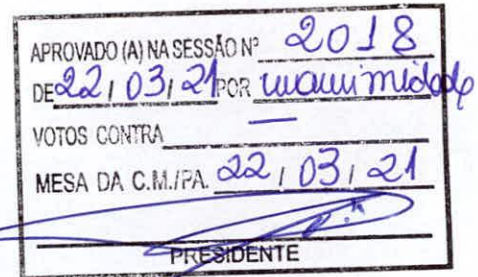 APROVADO (A) NA SESSÃO Nº 2018
DE 22 / 03 / 21 POR unanimidade
VOTOS CONTRA —
MESA DA C.M./PA. 22 / 03 / 21
PRESIDENTE